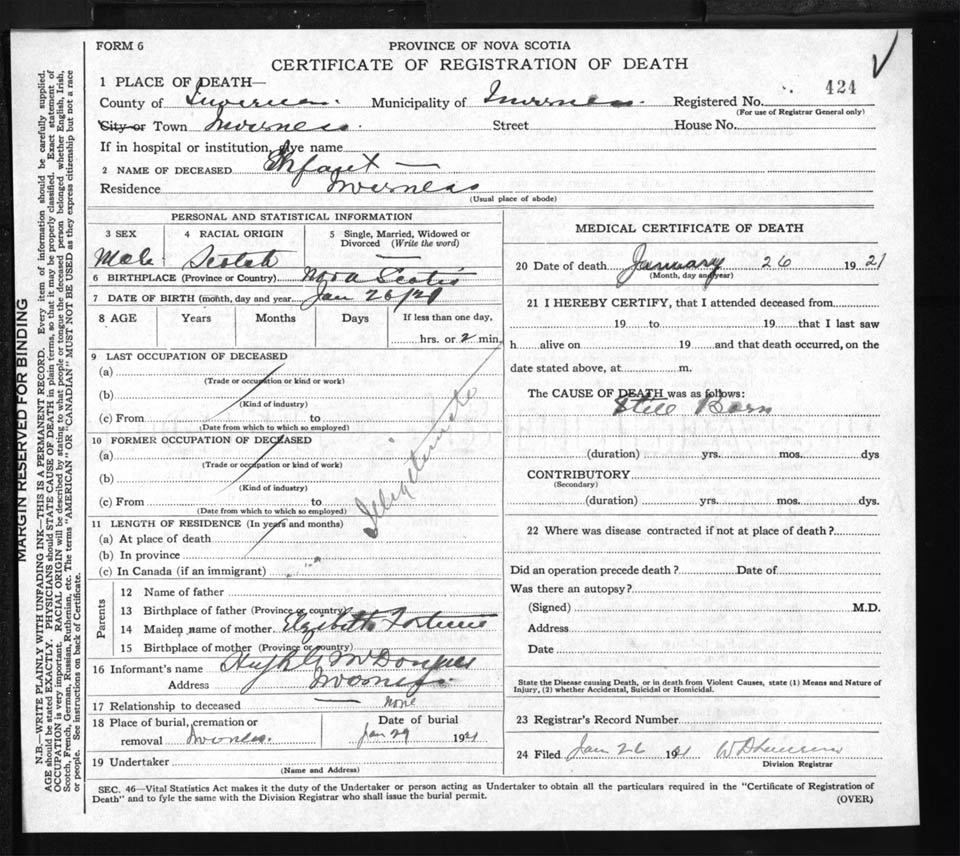 FORM 6
PROVINCE OF NOVA SCOTIA
CERTIFICATE OF REGISTRATION OF DEATH
1 PLACE OF DEATH—
424
County of Inverness. Municipality of Inverness. Registered No.
(For use of Registrar General only)
City or Town Inverness. Street House No.
If in hospital or institution, give name
2 NAME OF DECEASED Infant —
Residence Inverness
(Usual place of abode)
PERSONAL AND STATISTICAL INFORMATION
3 SEX 4 RACIAL ORIGIN 5 Single, Married, Widowed or
Divorced (Write the word)
Male Scotch —
6 BIRTHPLACE (Province or Country) Nova Scotia
7 DATE OF BIRTH (month, day and year) Jan 26/21
8 AGE Years Months Days If less than one day,
hrs. or 2 min.
9 LAST OCCUPATION OF DECEASED
(a)
(Trade or occupation or kind or work)
(b)
(Kind of industry)
(c) From to
(Date from which to which so employed)
10 FORMER OCCUPATION OF DECEASED
(a)
(Trade or occupation or kind of work)
(b)
(Kind of industry)
(c) From to
(Date from which to which so employed)
Illegitimate
11 LENGTH OF RESIDENCE (In years and months)
(a) At place of death
(b) In province
(c) In Canada (if an immigrant)
Parents
12 Name of father
13 Birthplace of father (Province or country)
14 Maiden name of mother Elizabeth Fortune
15 Birthplace of mother (Province or country)
16 Informant's name Hugh McDougall
Address Inverness.
17 Relationship to deceased — none
18 Place of burial, cremation or Date of burial
removal Inverness. Jan 29 1921
19 Undertaker
(Name and Address)
MEDICAL CERTIFICATE OF DEATH
20 Date of death January 26 1921
(Month, day and year)
21 I HEREBY CERTIFY, that I attended deceased from
19 to 19 that I last saw
h alive on 19 and that death occurred, on the
date stated above, at m.
The CAUSE OF DEATH was as follows:
Still Born
(duration) yrs. mos. dys
CONTRIBUTORY
(Secondary)
(duration) yrs. mos. dys.
22 Where was disease contracted if not at place of death?
Did an operation precede death? Date of
Was there an autopsy?
(Signed) M.D.
Address
Date
State the Disease causing Death, or in death from Violent Causes, state (1) Means and Nature of
Injury, (2) whether Accidental, Suicidal or Homicidal.
23 Registrar's Record Number
24 Filed Jan 26 1921
Division Registrar
SEC. 46—Vital Statistics Act makes it the duty of the Undertaker or person acting as Undertaker to obtain all the particulars required in the "Certificate of Registration of
Death" and to fyle the same with the Division Registrar who shall issue the burial permit.
(OVER)
MARGIN RESERVED FOR BINDING
N.B.—WRITE PLAINLY WITH UNFADING INK—THIS IS A PERMANENT RECORD. Every item of information should be carefully supplied.
AGE should be stated EXACTLY. PHYSICIANS should STATE CAUSE OF DEATH in plain terms, so that it may be properly classified. Exact statement of
OCCUPATION is very important. RACIAL ORIGIN will be described by stating to what people or tongue the deceased person belonged whether English, Irish,
Scotch, French, German, Russian, Ruthenian, etc. The terms "AMERICAN" OR "CANADIAN" MUST NOT BE USED as they express citizenship but not a race
or people. See instructions on back of Certificate.